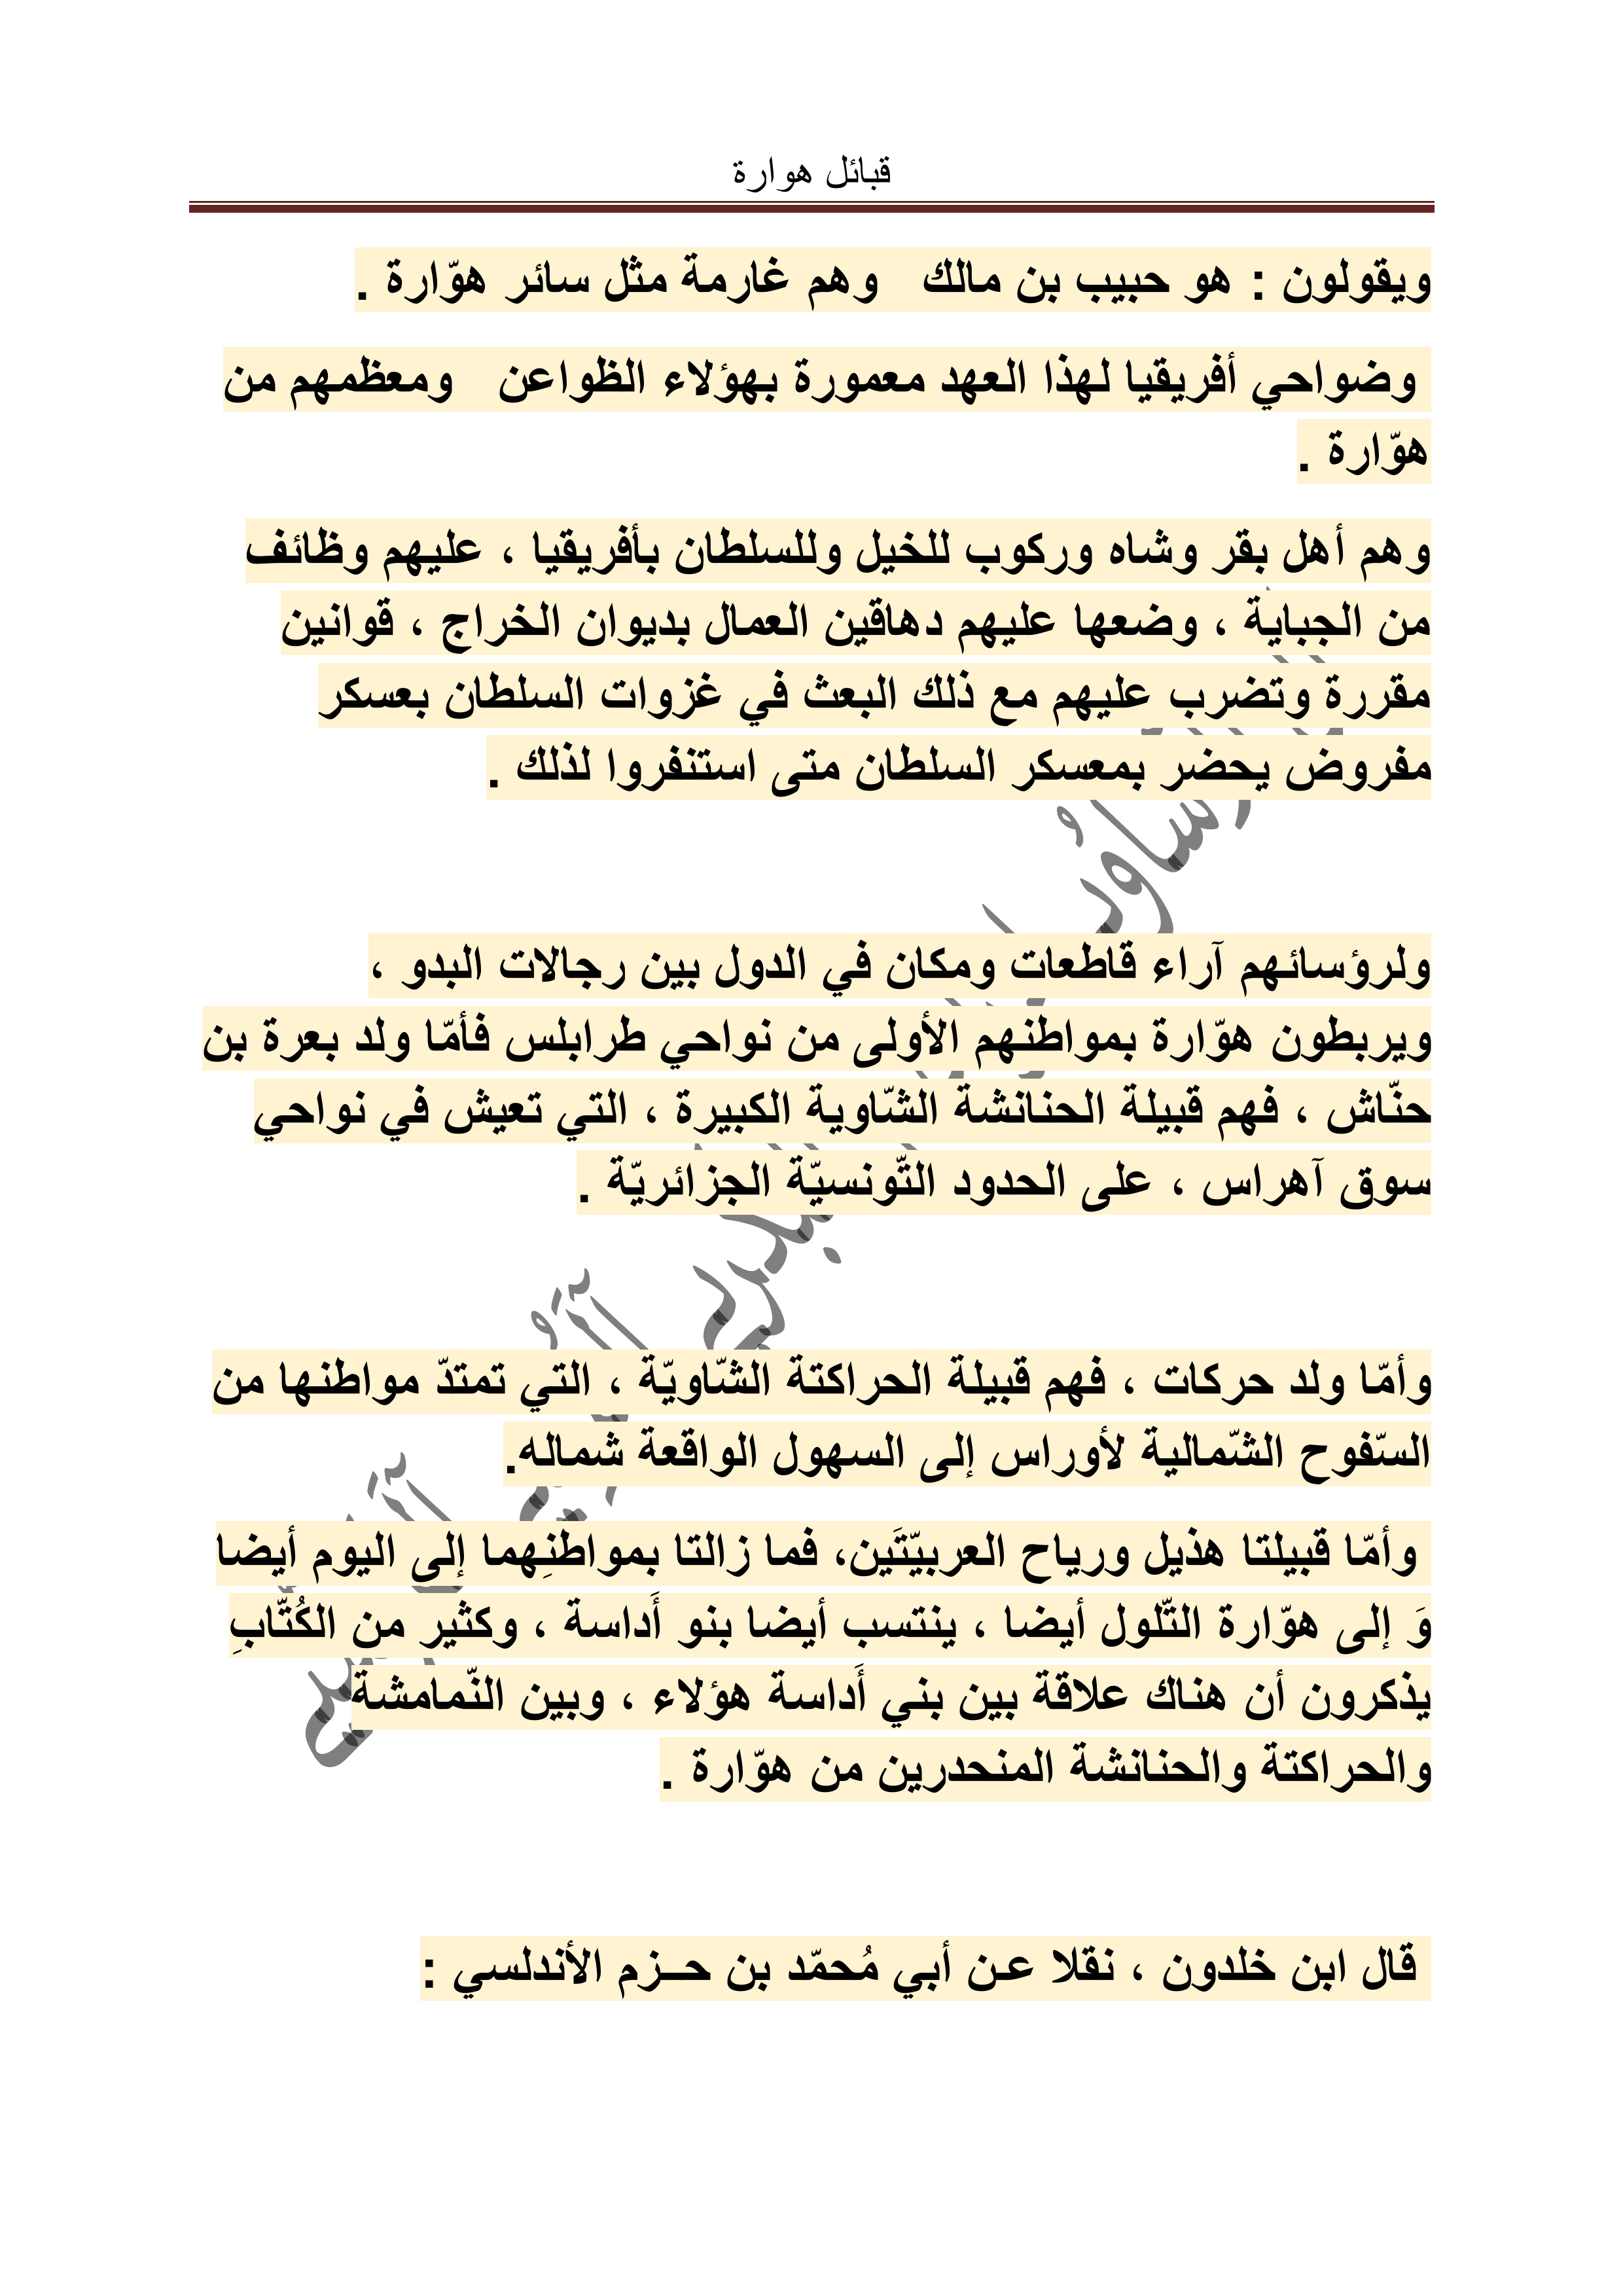 قبائل هوارة
ويقولون : هو حبيب بن مالك وهم غارمة مثل سائر هوّارة .
وضواحي أفريقيا لهذا العهد معمورة بهؤلاء الظواعن ومعظمهم من
هوّارة .
وهم أهل بقر وشاه وركوب للخيل وللسلطان بأفريقيا ، عليهم وظائف
من الجباية ، وضعها عليهم دهاقين العمال بديوان الخراج ، قوانين
مقررة وتضرب عليهم مع ذلك البعث في غزوات السلطان بعسكر
مفروض يحضر بمعسكر السلطان متى استنفروا لذلك .
ولرؤسائهم آراء قاطعات ومكان في الدول بين رجالات البدو ،
ويربطون هوّارة بمواطنهم الأولى من نواحي طرابلس فأمّا ولد بعرة بن
حنّاش ، فهم قبيلة الحنانشة الشّاوية الكبيرة ، التي تعيش في نواحي
سوق آهراس ، على الحدود التّونسيّة الجزائريّة .
وأمّا ولد حركات ، فهم قبيلة الحراكتة الشّاويّة ، التي تمتدّ مواطنها من
السّفوح الشّمالية لأوراس إلى السهول الواقعة شماله.
وأمّا قبيلتا هذيل ورياح العربيّتَين، فما زالتا بمواطنِهما إلى اليوم أيضا
وَ إلى هوّارة التّلول أيضا ، ينتسب أيضا بنو أَداسة ، وكثير من الكُتّابِ
يذكرون أن هناك علاقة بين بني أَداسة هؤلاء ، وبين النّمامشة
والحراكتة والحنانشة المنحدرين من هوّارة .
قال ابن خلدون ، نقلا عـن أبي مُحمّد بن حــزم الأندلسي :